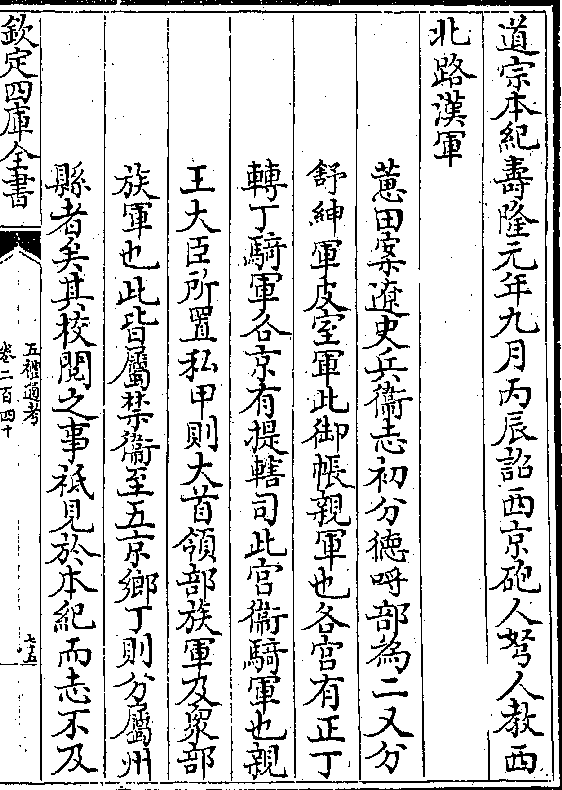 道宗本紀壽隆元年九月丙辰詔西京砲人弩人教西
北路漢軍
蕙田案遼史兵衞志初分德呼部為二又分
舒紳軍皮室軍此御帳親軍也各宮有正丁
轉丁騎軍各京有提轄司此宮衞騎軍也親
王大臣所置私甲則大首領部族軍及衆部
族軍也此皆屬禁衞至五京鄉丁則分屬州
縣者矣其校閱之事祗見於本紀而志不及
欽定四庫全書
五禮通考
卷二百四十
七五